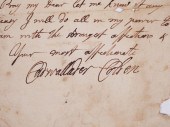 Pray my Dear let me know if any
way I will do all in my power to
him with the strongest affection &
Your most affectionate
Cadwallader Colden